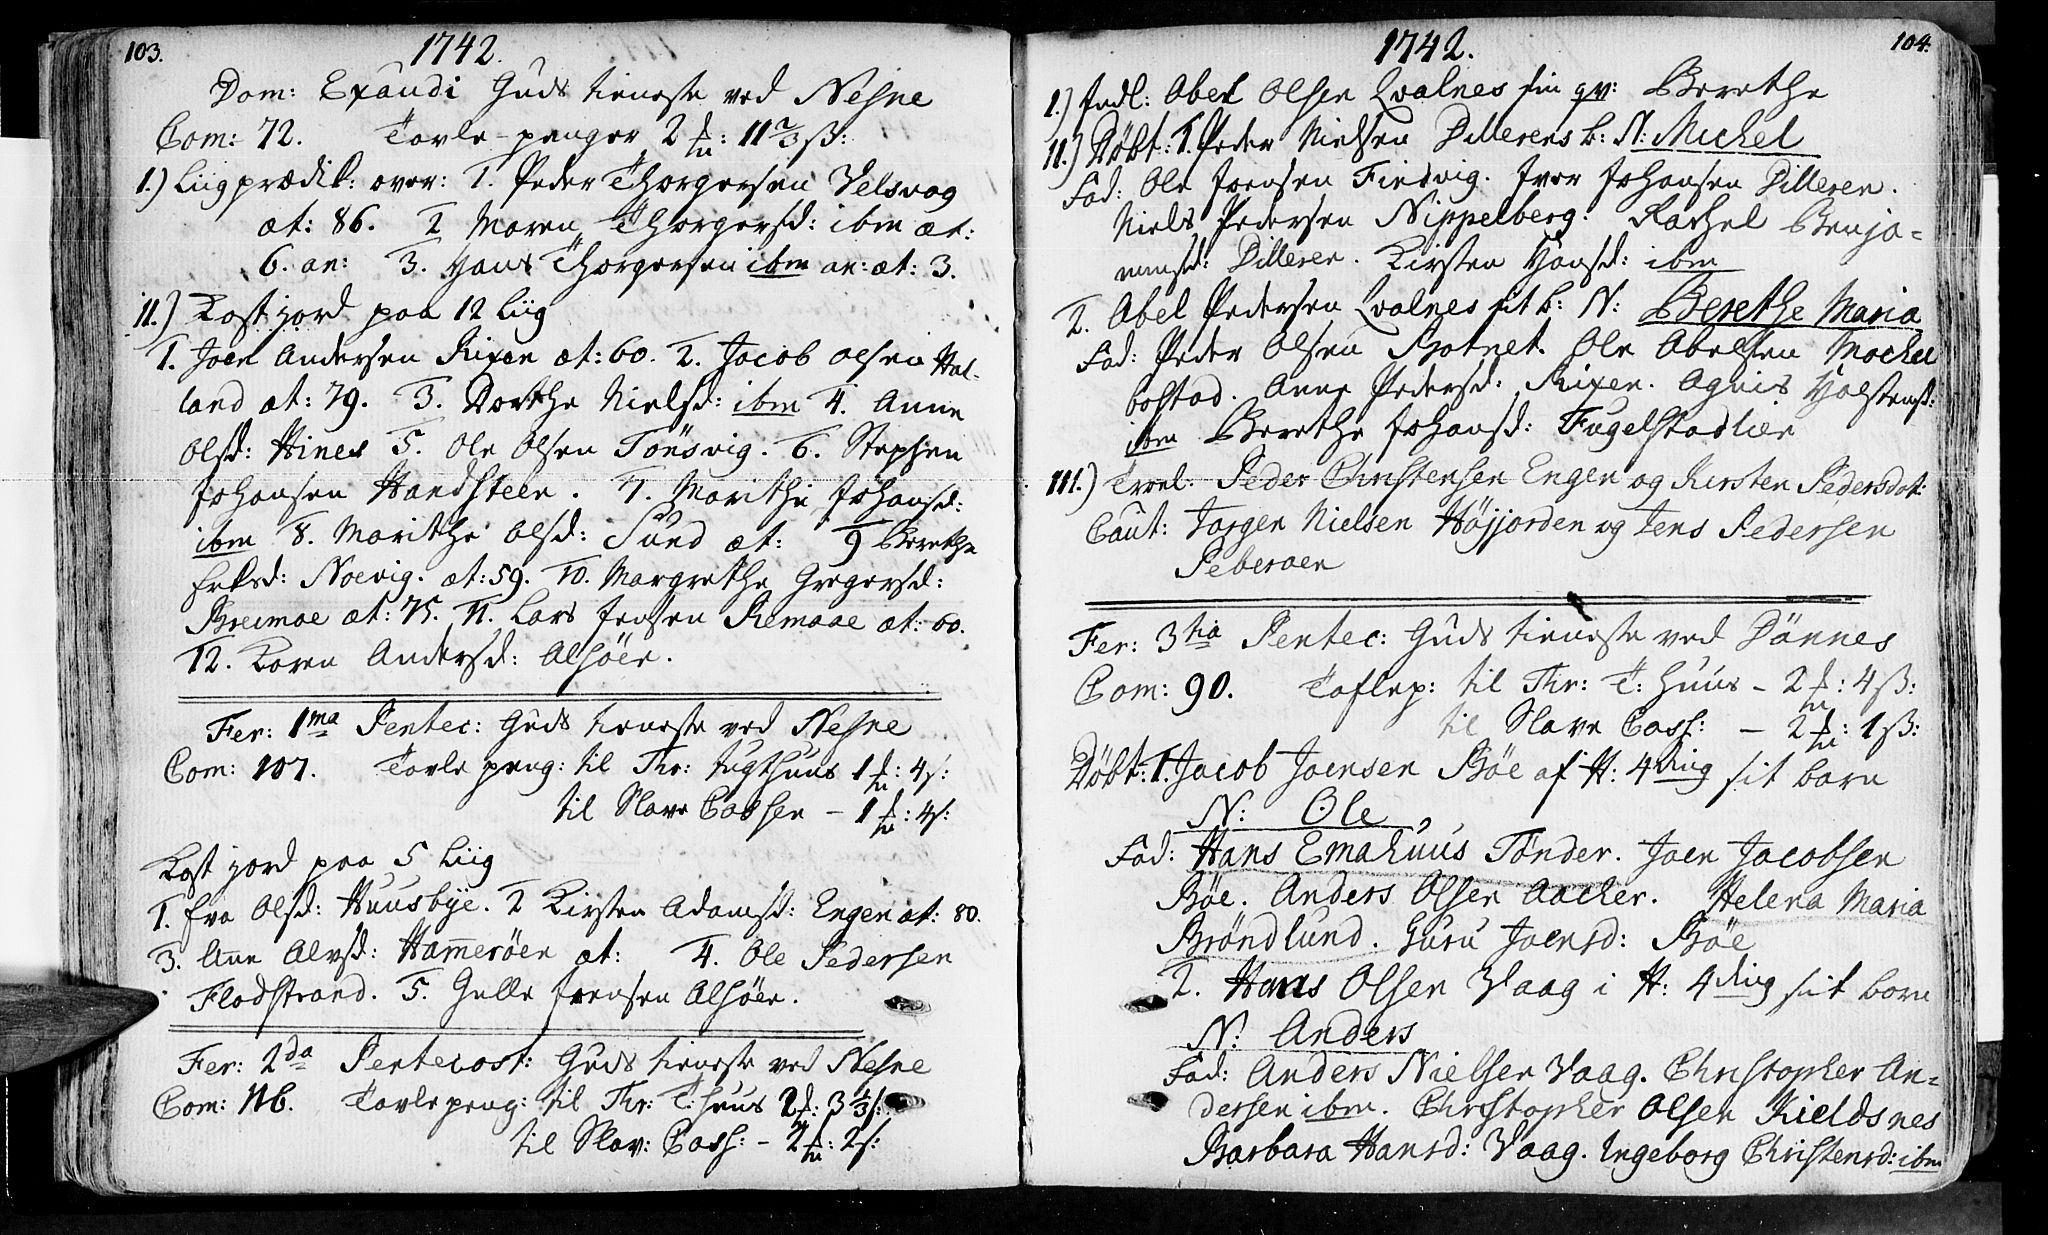 103.
1742.
Dom: Exaudi Guds tieneste ved Nesne
Com: 72. Tavle-penger 2 : 11 2/3 ß:
I.) Liigprædik: over: 1. Peder Thorgersen Velsvog
æt: 86. 2 Maren Thorgersd: ibm æt:
6. an: 3. Hans Thorgersen ibm an: æt: 3.
II.) Kast jord paa 12 Liig
1. Joen Andersen Rixen æt: 60. 2. Jacob Olsen Hal-
land æt: 79. 3. Dorthe Nielsd: ibm 4. Anne
Olsd: Hines 5. Ole Olsen Tönsvig. 6. Stephen
Johansen Handsteen. 7. Marithe Johansd:
ibm 8. Marithe Olsd: Sund æt: 9 Berethe
Eriksd: Noevig. æt: 59. 10. Margrethe Gregersd:
Breimoe æt: 75. 11. Lars Jensen Remaae æt: 60.
12. Karen Andersd: Alsöen.
Fer: 1ma Pentec: Guds tieneste ved Nesne
Com: 107. Tavle peng: til Thr: tugthuus 1 : 4 ß:
til Slave Cassen - 1 : 4 ß:
Kast jord paa 5 Liig
1. Eva Olsd: Huusbye. 2 Kirsten Adamsd: Engen æt: 80.
3. Ane Alvsd: Hameröen æt: 4. Ole Pedersen
Flodstrand. 5. Gulle Joensen Alsöen.
Fer: 2da Pentecost: Guds tieneste ved Nesne
Com: 116. Tavlepeng: til Thr: T: huus 2 : 3 1/3 ß:
til Slav: Cass: - 2 : 2 ß:
104.
1742.
I.) Indl: Abel Olsen Qvalnes sin qv: Berethe
II.) Döbt: 1. Peder Nielsen Dillerens b: N: Michel
Fad: Ole Joensen Findvig. Iver Johansen Dilleren.
Niels Pedersen Nippelberg. Rachel Benja=
minsd: Dilleren. Kirsten Hansd: ibm
2. Abel Pedersen Qvalnes sit b: N: Berethe Maria
Fad: Peder Olsen Botnet. Ole Abelsen Mochel
bostad. Anne Pedersd: Rixen. Agnis Holstensd:
ibm Berethe Johansd: Fugelstadlien
III.) Trol: Peder Christensen Engen og Kirsten Pedersdat:
Caut: Jorgen Nielsen Höjjorden og Jens Pedersen
Peberoen
Fer: 3tia Pentec: Guds tieneste ved Dönnes
Com: 90. Taflep: til Thr: T: huus - 2 : 4 ß:
til Slave Cass: - 2 : 1 ß:
Döbt: 1. Jacob Joensen Böe af H: 4ding sit barn
N: Ole
Fad: Hans Emahuus Tönder. Joen Jacobsen
Böe. Anders Olsen Aacher. Helena Maria
Bröndlund. Guru Joensd: Böe
2. Hans Olsen Vaag i H: 4ding sit barn
N: Anders
Fad: Anders Nielsen Vaag. Christopher An=
dersen ibm. Christopher Olsen Kieldsnes
Barbara Hansd: Vaag. Ingeborg Christensd: ibm